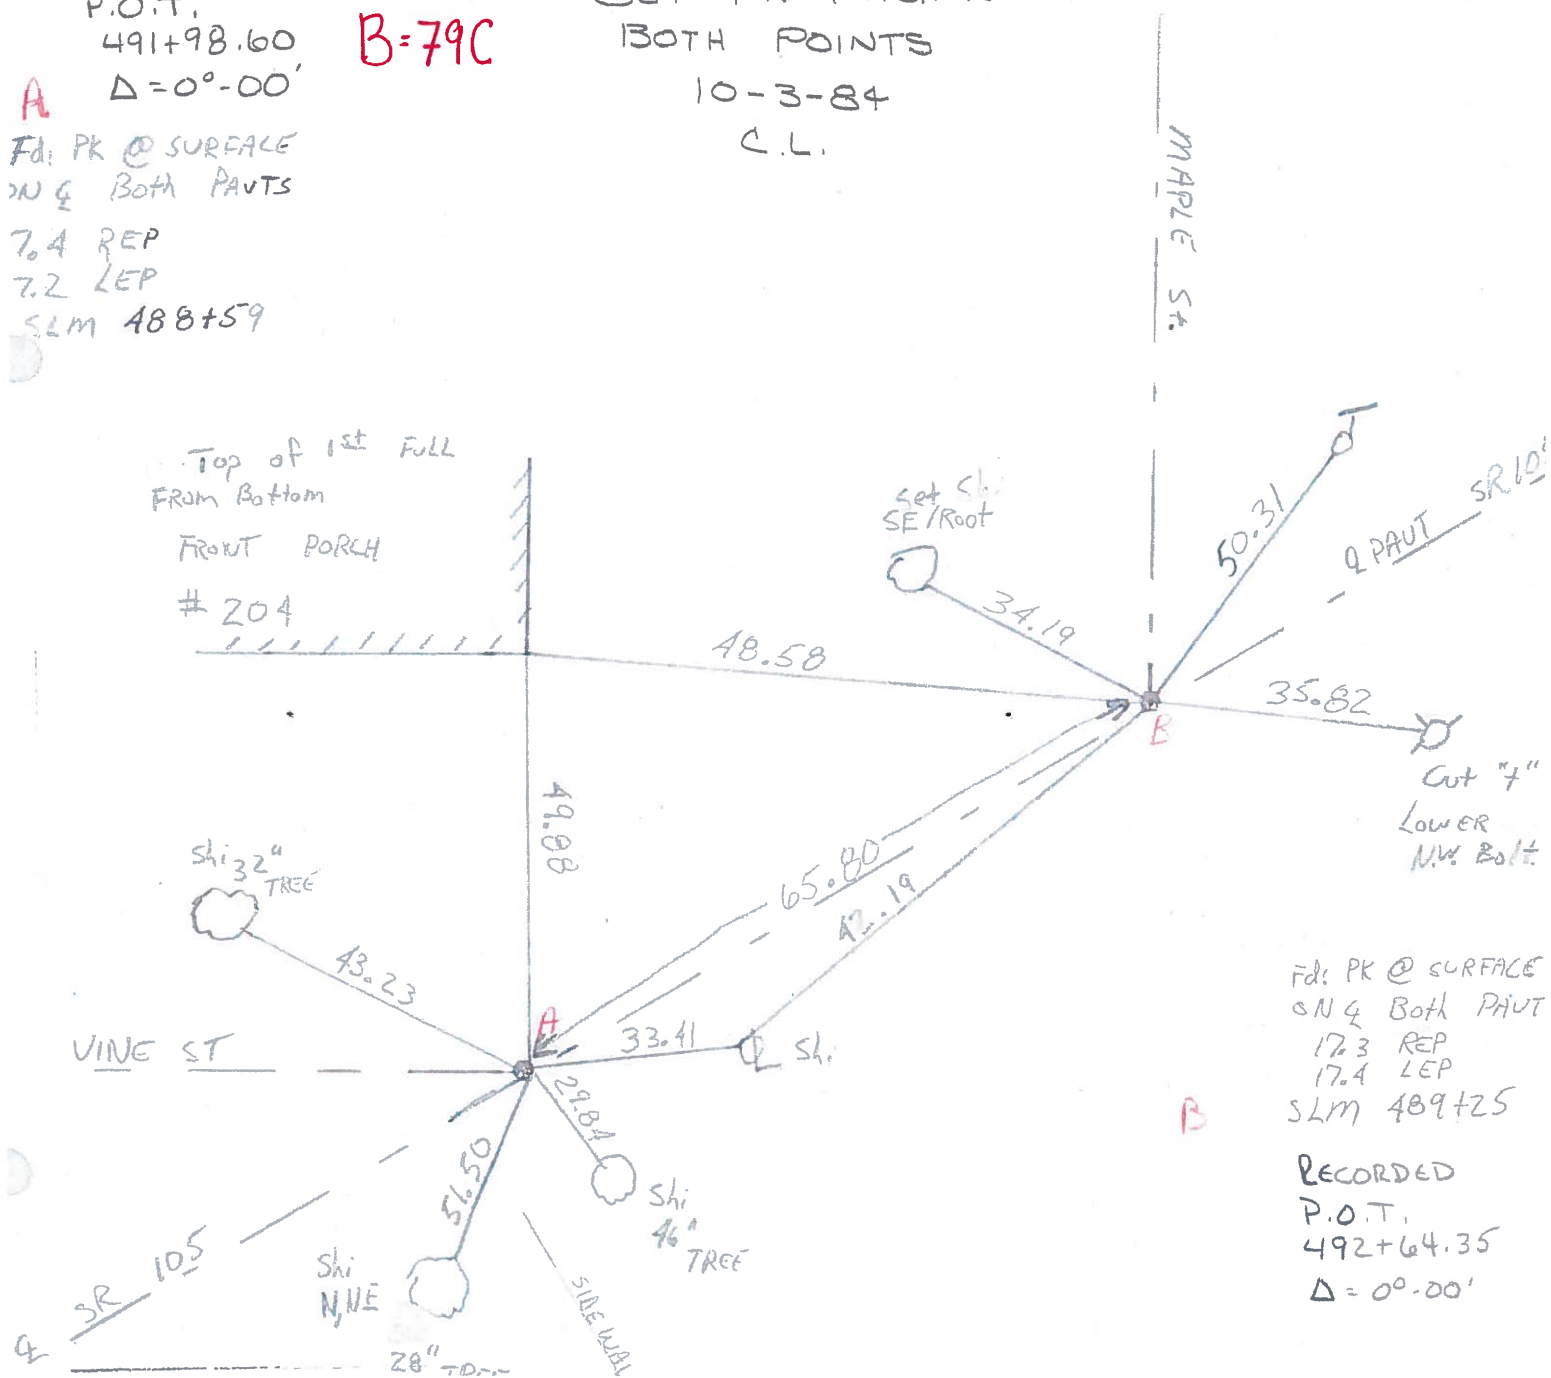 P.O.T.
491+98.60
Δ=0°-00'
B=79C
BOTH POINTS
10-3-84
C.L.
A
Fd: PK @ SURFACE
ON ℄ Both PAVTS
7.4 REP
7.2 LEP
SLM 488+59
MAPLE St.
Top of 1st FULL
FROM Bottom
FRONT PORCH
# 204
Set Sh.
SE/Root
34.19
50.31
℄ PAVT
SR 105
48.58
35.82
B
Cut "+"
LOWER
N.W. Bolt
49.88
65.80
42.19
Shi 32"
TREE
43.23
A
33.41
Sh.
VINE ST
29.84
51.50
Shi
46"
TREE
Shi
N,NE
28" TREE
SIDE WAL
SR 105
℄
Fd: PK @ SURFACE
ON ℄ Both PAVT
17.3 REP
17.4 LEP
B
SLM 489+25
RECORDED
P.O.T.
492+64.35
Δ = 0°-00'